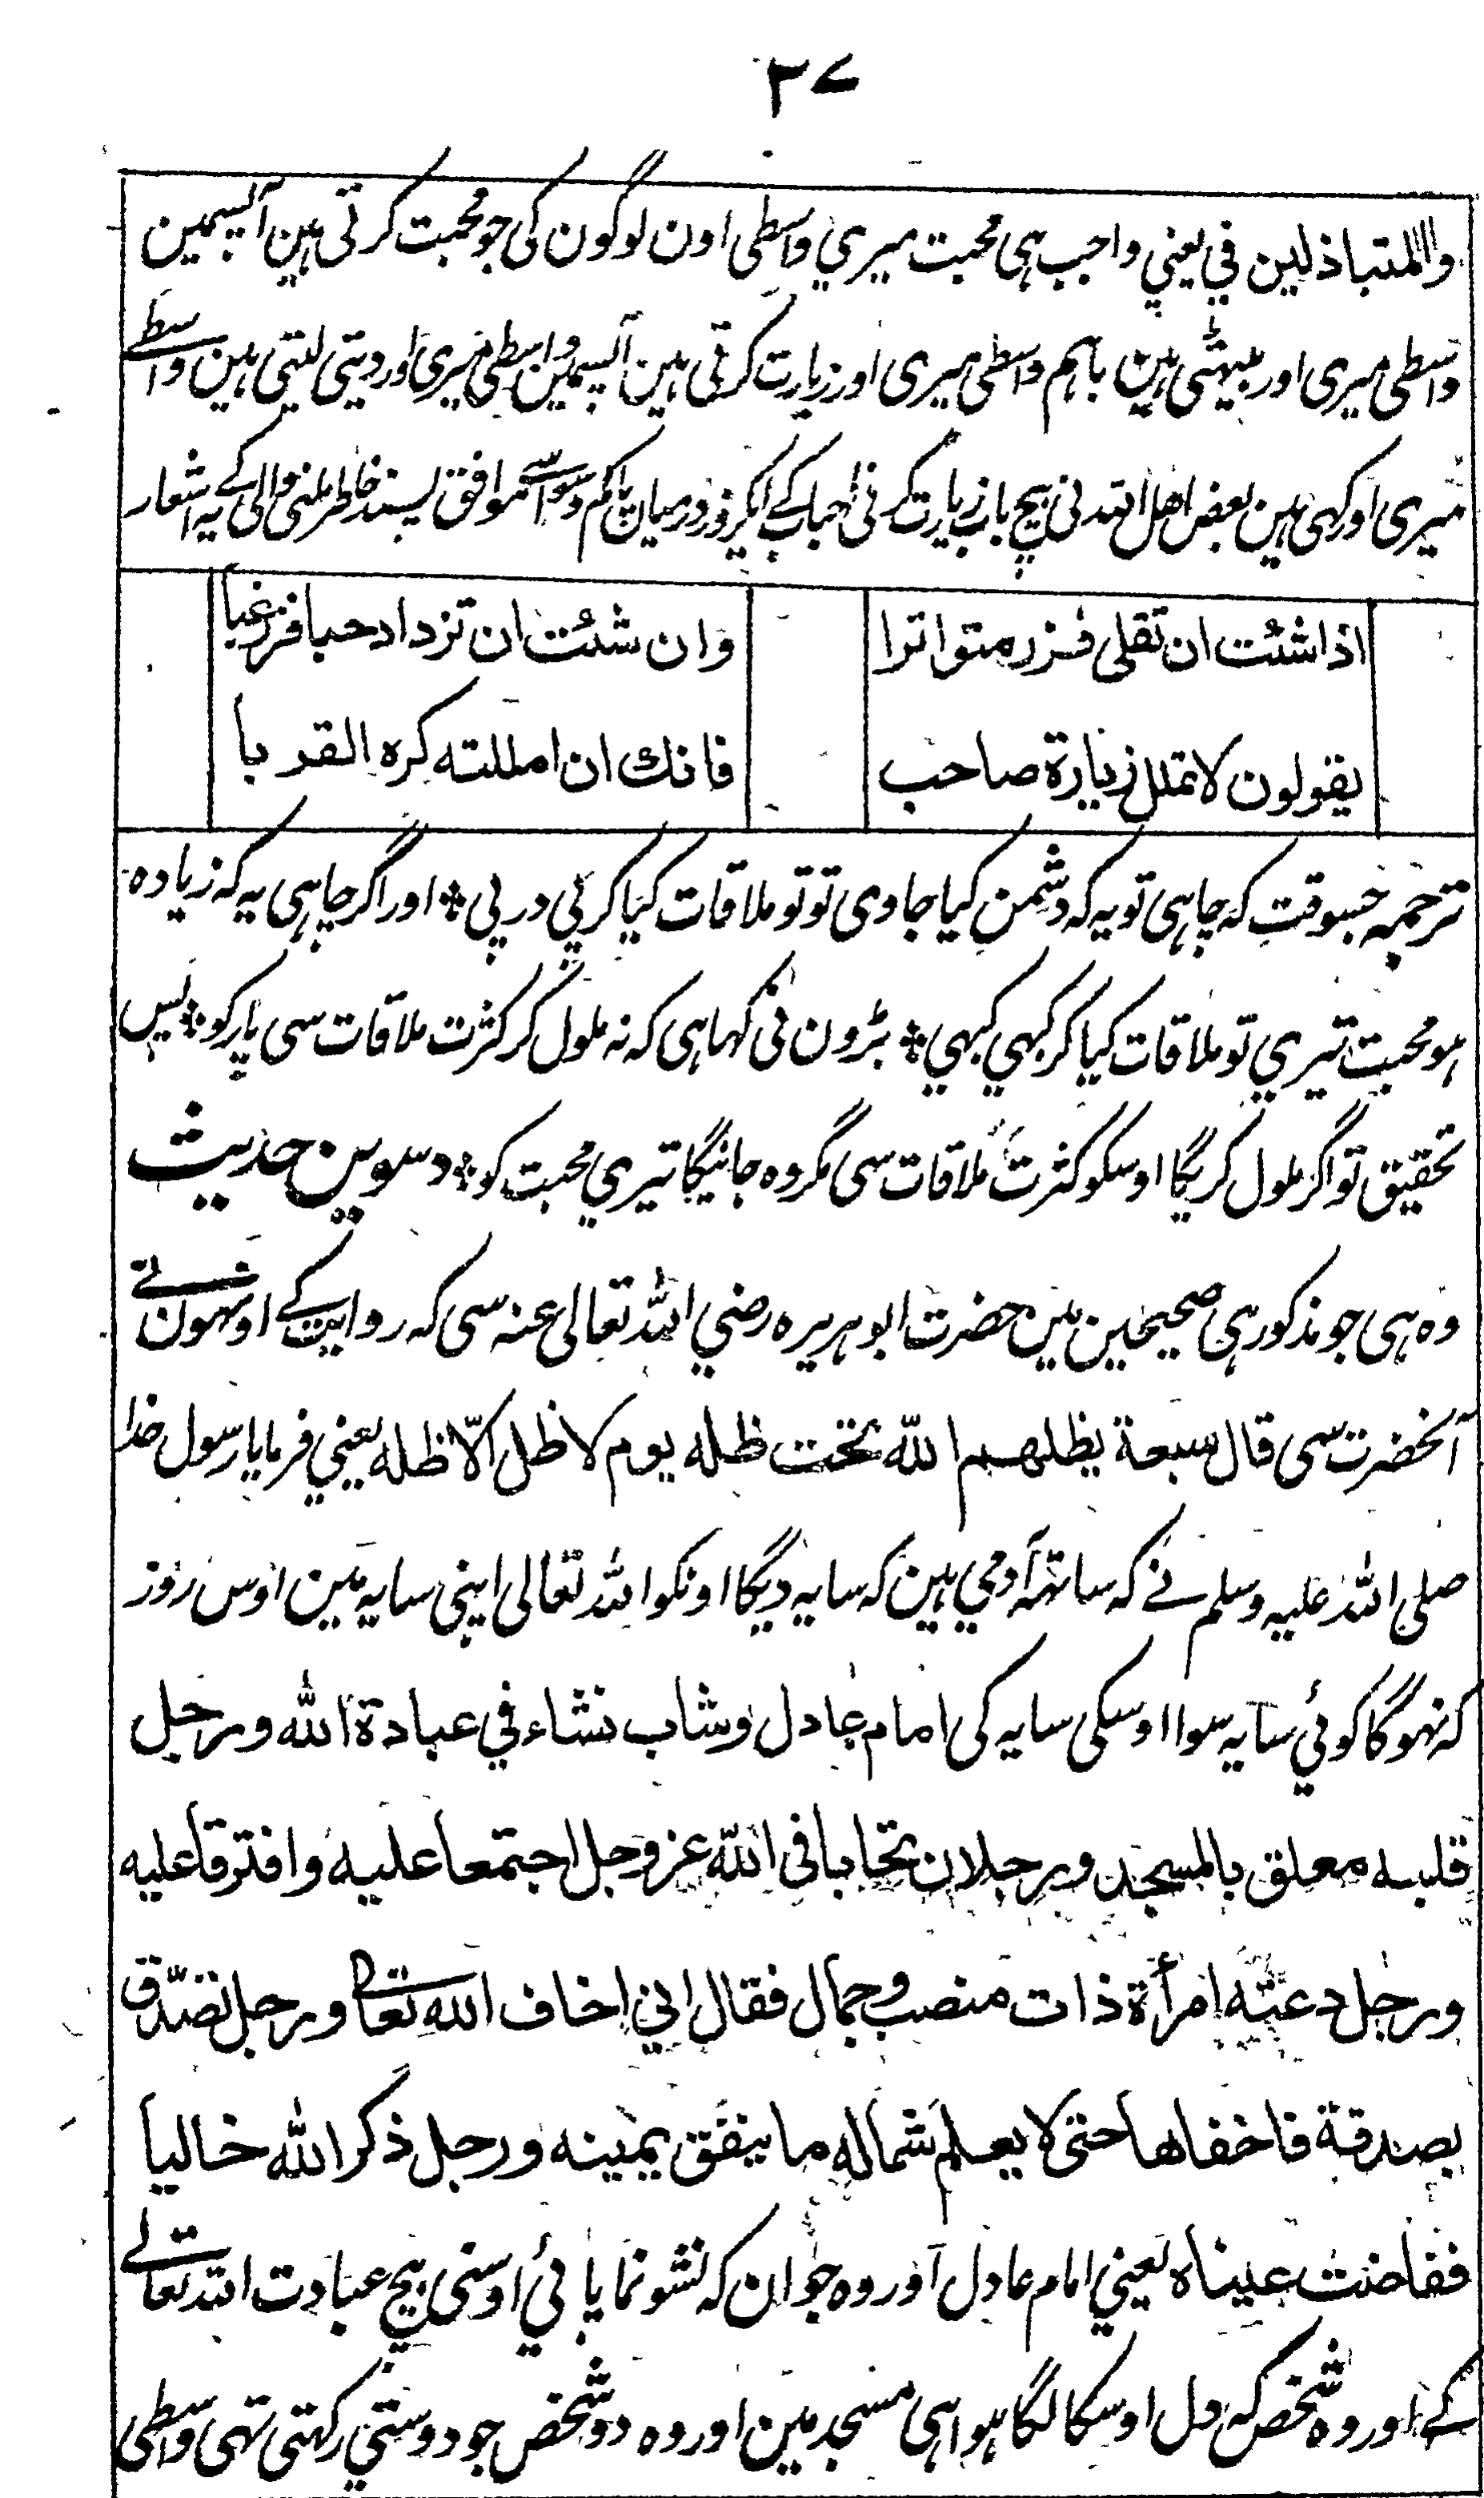 ۳۷
والمتباذلین في یعني واجب ہی محبت میري واسطی اون لوگون کی جو محبت کرتی ہین آپسمین
واسطی میری اور بیٹهتی ہین باہم واسطی میری اور زیارت کرتی ہین آپسمین واسطی میری اور دیتی لیتی ہین واسطے
میری اور کہی ہین بعض اهل الله نی بیچ باب زیارت کرنی احباب کے موافق پسند خاطر ملنی والی کے یہ اشعار
اذا شئت ان تقلی فزر متواترا وان شئت ان تزداد حبا فزر غبا
یقولون لا تملل زیارة صاحب فانك ان امللته کره القربا
ترجمہ جسوقت کہ چاہی تو یہ کہ دشمن کیا جاوی تو تو ملاقات کیا کر پی در پی ؞ اور اگر چاہی یہ کہ زیادہ
ہو محبت تیري تو ملاقات کیا کر کبهي کبهي ؞ بڑون نی کہا ہی کہ نہ ملول کر کثرت ملاقات سی یار کو ؞ پس
تحقیق تو اگر ملول کریگا اوسکو کثرت ملاقات سی مکروہ جانیگا تیري محبت کو ؞ دسوین حدیث
وہ ہی جو مذکور ہی صحیحین مین حضرت ابو ہریرہ رضي الله تعالی عنہ سی کہ روایت کے اونهون نے
آنحضرت سی قال سبعة یظلهم الله تحت ظله یوم لا ظل الّا ظله یعني فرمایا رسول خدا
صلی الله علیہ وسلم نے کہ ساتهہ آدمي ہین کہ سایہ دیگا اونکو الله تعالی اپني سایہ مین اوس روز
کہ نہوگا کوئي سایہ سوا اوسکی سایہ کی امام عادل وشاب نشاء في عبادة الله ورجل
قلبه معلق بالمسجد ورجلان تحابا فی الله عز وجل اجتمعا علیه وافترقا علیه
ورجل دعته امرأة ذات منصب وجمال فقال اني اخاف الله تعالی ورجل تصدّق
بصدقة فاخفاها حتی لا یعلم شماله ما ینفق یمینه ورجل ذکر الله خالیا
ففاضت عیناه یعني امام عادل اور وہ جوان کہ نشو نما پائي اوسنی بیچ عبادت الله تعالے
کے اور وہ شخص کہ دل اوسکا لگا ہوا ہی مسجد مین اور وہ دو شخص جو دوستي رکهتی تهی واسطی